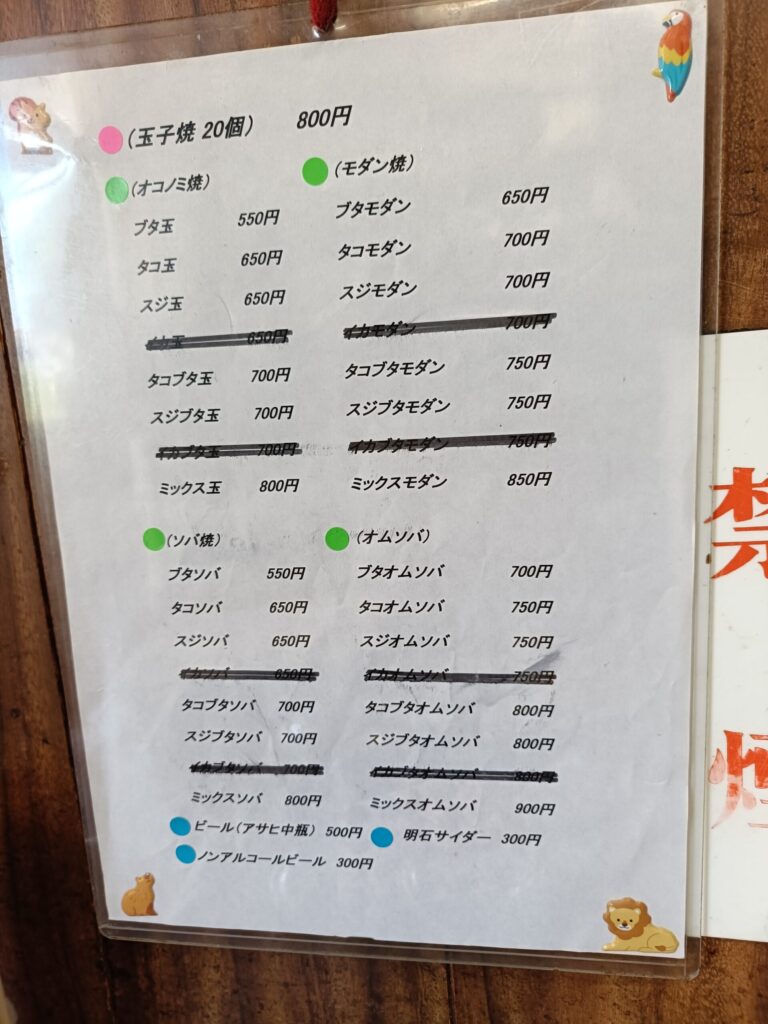 (玉子焼 20個) 800円
(オコノミ焼)
ブタ玉 550円
タコ玉 650円
スジ玉 650円
イカ玉 650円
タコブタ玉 700円
スジブタ玉 700円
イカブタ玉 700円
ミックス玉 800円
(モダン焼)
ブタモダン 650円
タコモダン 700円
スジモダン 700円
イカモダン 700円
タコブタモダン 750円
スジブタモダン 750円
イカブタモダン 750円
ミックスモダン 850円
(ソバ焼)
ブタソバ 550円
タコソバ 650円
スジソバ 650円
イカソバ 650円
タコブタソバ 700円
スジブタソバ 700円
イカブタソバ 700円
ミックスソバ 800円
(オムソバ)
ブタオムソバ 700円
タコオムソバ 750円
スジオムソバ 750円
イカオムソバ 750円
タコブタオムソバ 800円
スジブタオムソバ 800円
イカブタオムソバ 800円
ミックスオムソバ 900円
ビール(アサヒ中瓶) 500円
明石サイダー 300円
ノンアルコールビール 300円
禁
煙